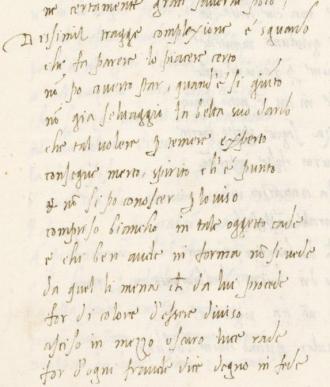 ne certamente gran saverta poto,
Di simil tragge complexione é sguardo
che fa parere lo piacere certo
nõ po coverto star, quand' é si giũto
nõ gia selvaggie la belta suo dardo
che tal volere p temere experto
consegue merto, spirito ch'é punto
& nõ si po conoscer p lo viso
compriso biancho in tale oggetto cade
e chi ben aude in forma nõ si vede
da quel li mena ch da lui procede
for di colore d'essere diviso
asciso in mezzo oscuro luce rade
for d'ogni fraude dice degno in fede